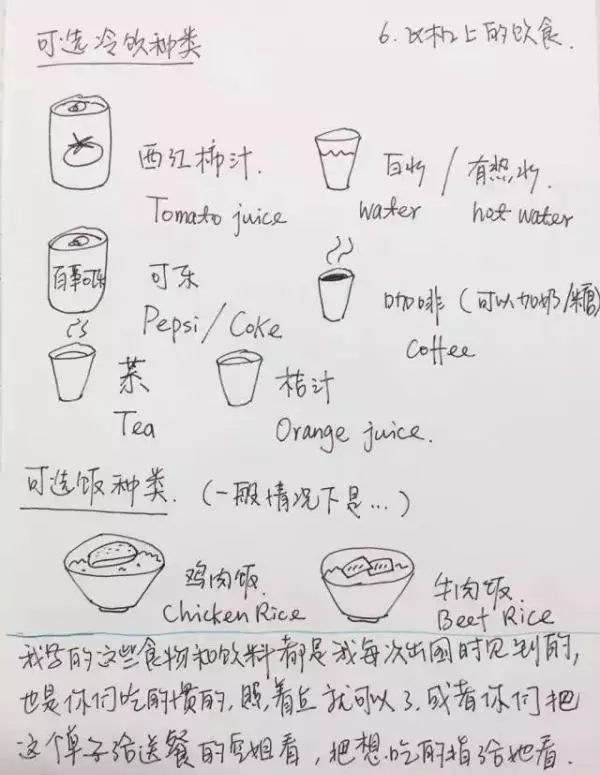 可选冷饮种类
6. 飞机上的饮食.
西红柿汁.
Tomato juice
白水 / 有热水.
water hot water
百事可乐
可乐
Pepsi/Coke
咖啡 (可以加奶/糖)
Coffee
茶
Tea
桔汁
Orange juice.
可选饭种类. (一般情况下是...)
鸡肉饭.
Chicken Rice
牛肉饭.
Beef Rice
我写的这些食物和饮料都是我每次出国时见到的,
也是你们吃的惯的, 照着点就可以了. 或者你们把
这个单子给送餐的空姐看, 把想吃的指给她看.